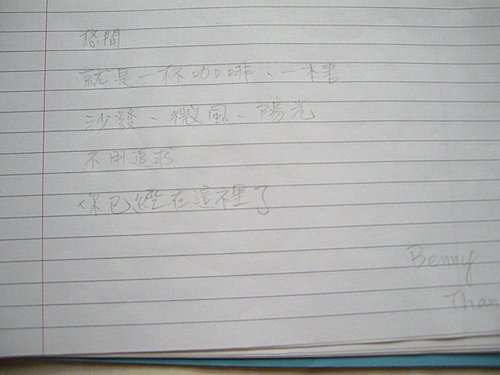 悠閒
就是一杯咖啡、一本書
沙發、微風、陽光
不用追求
你已經在這裡了
Benny
Than